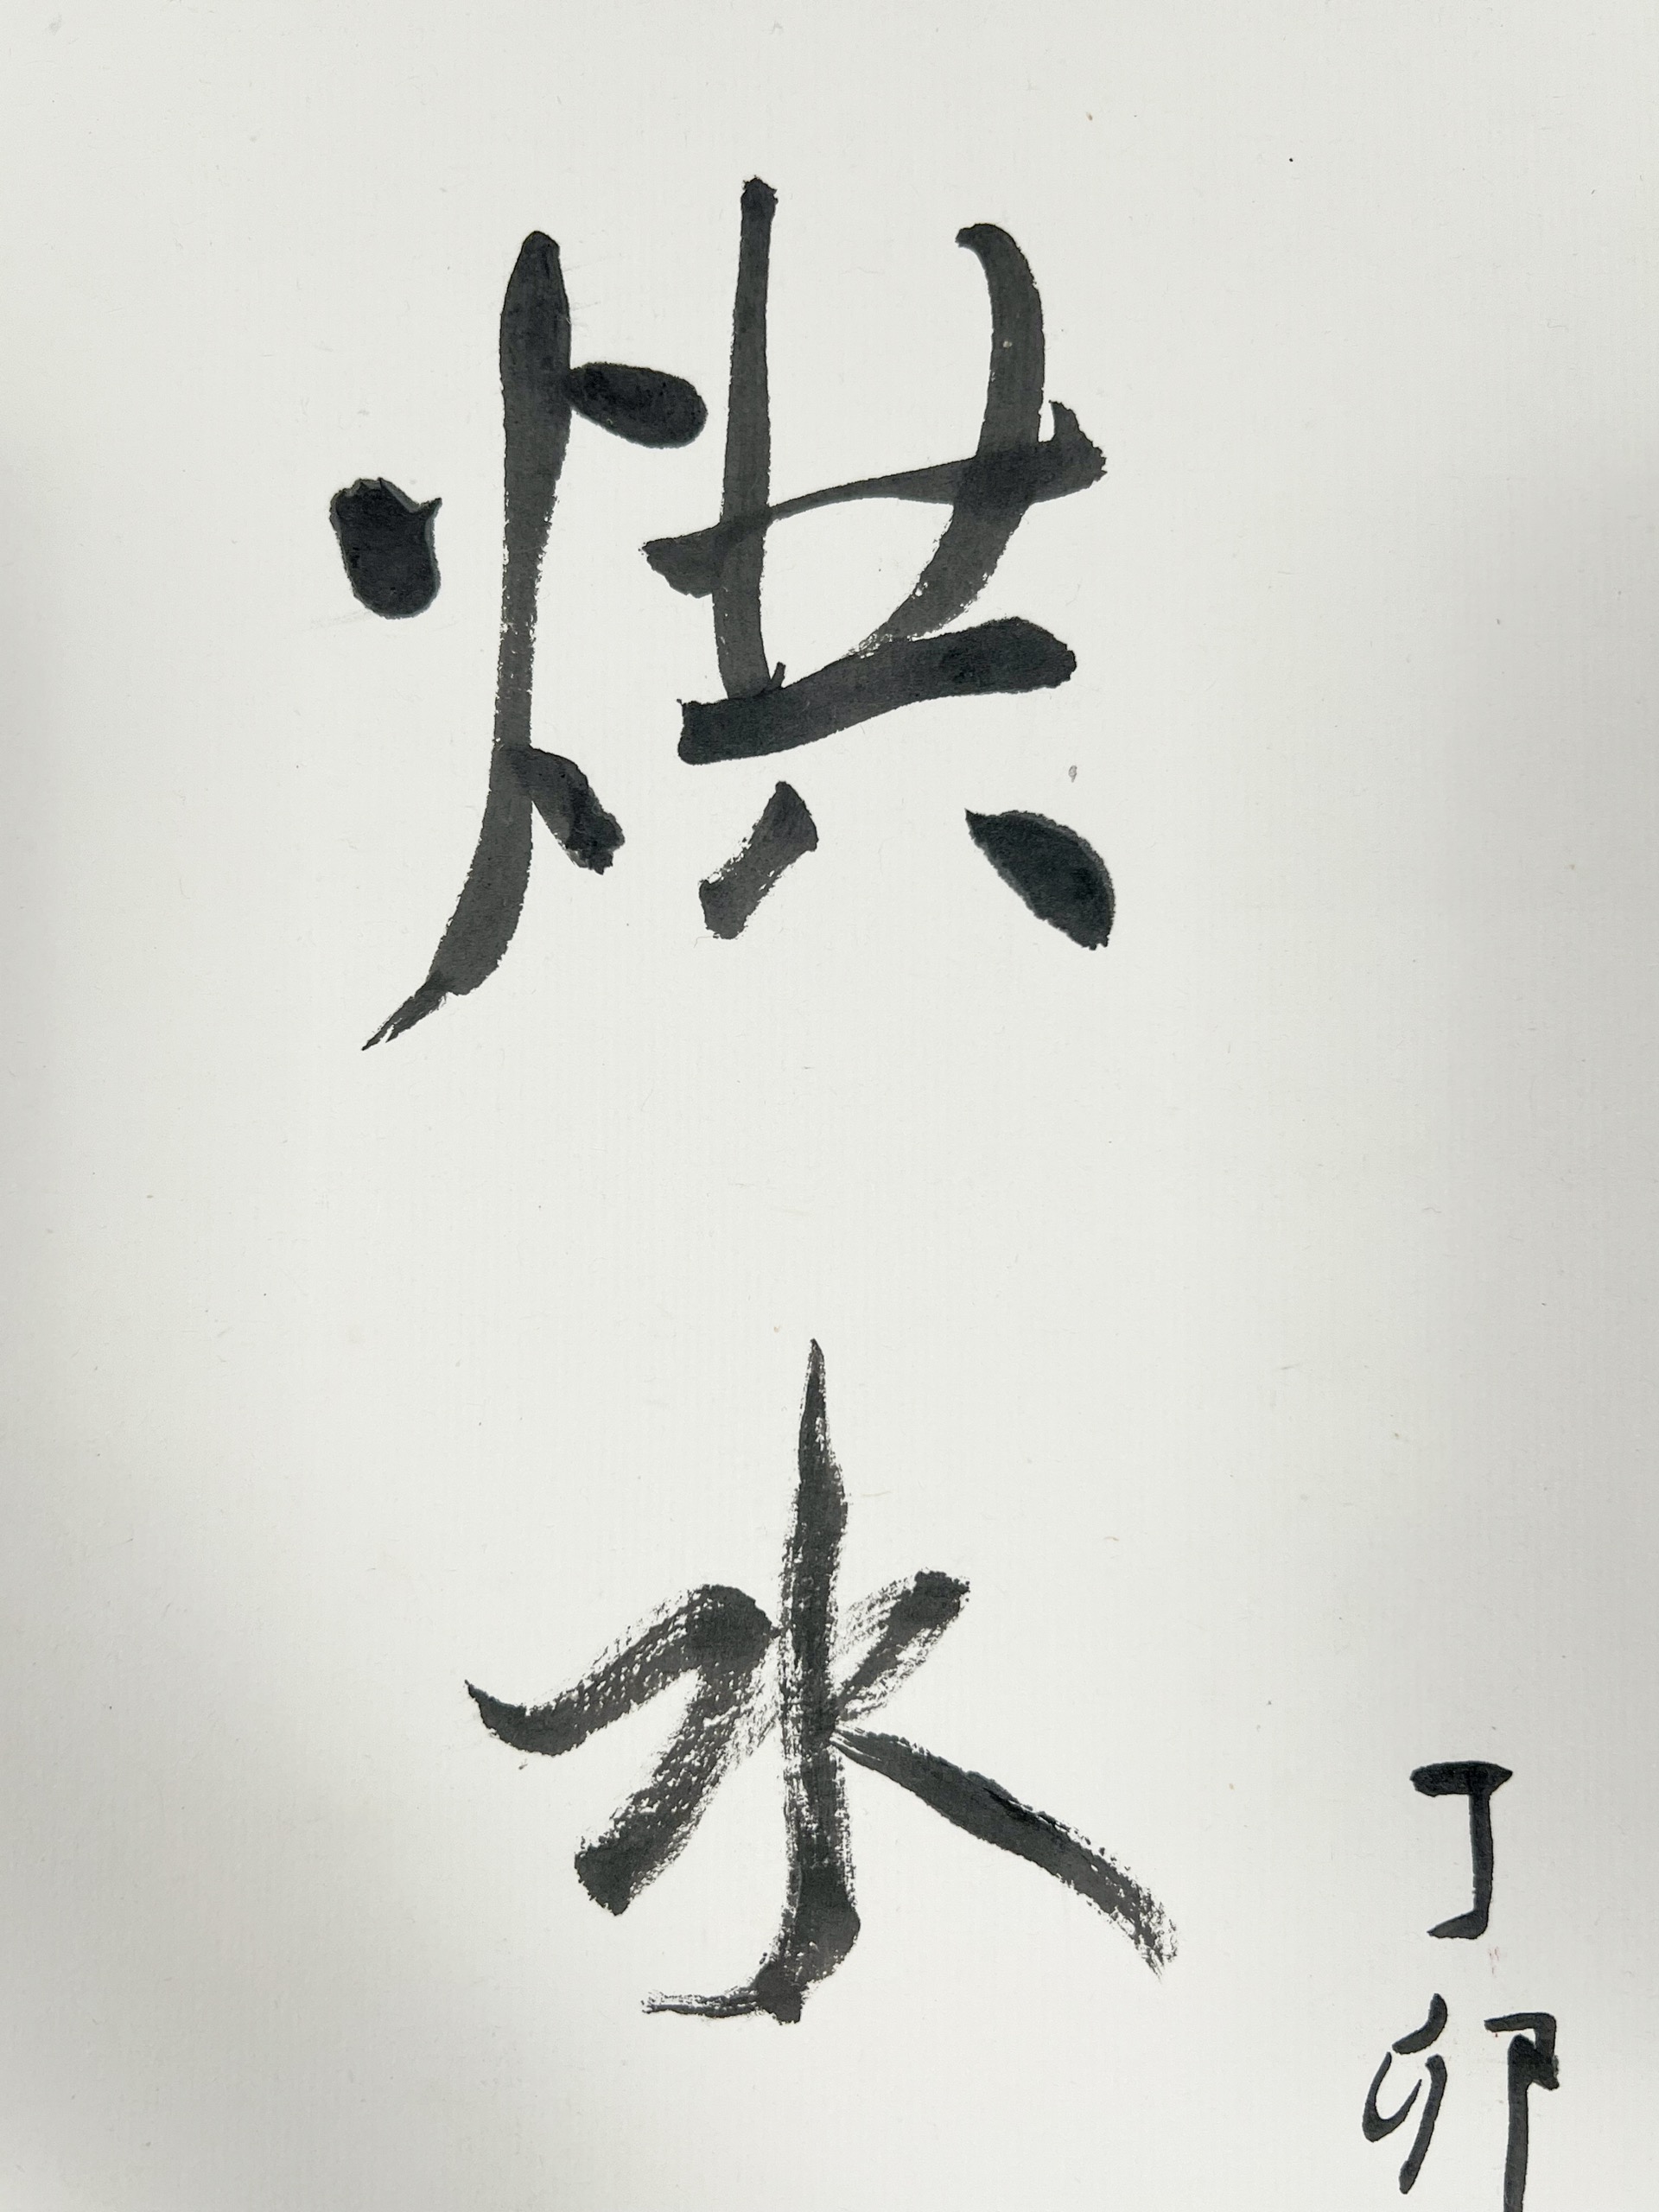 烘
水
丁卯